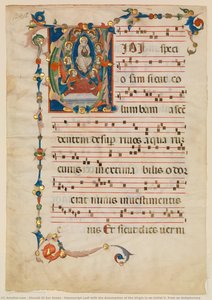 VIDI speci
osam sicut co
lumbam ascē
dentem desup rivos aqua rū
cuius inextima bilis odor
erat nimis investimentis ei
us Et sicut dies verni